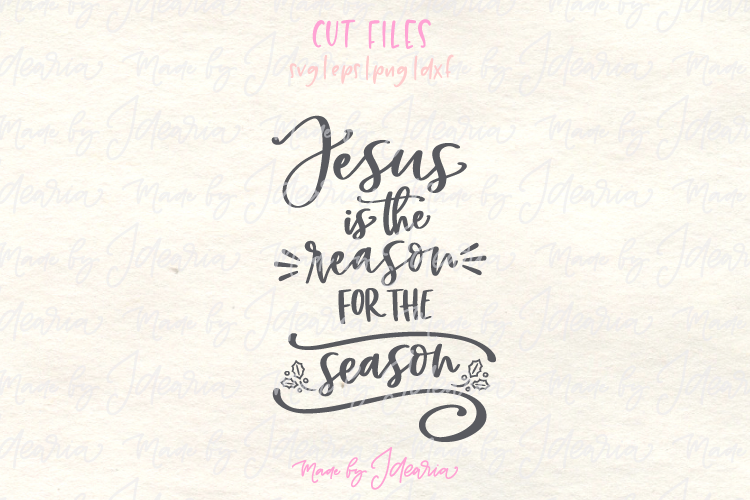 CUT FILES
svg|eps|png|dxf
Jesus
is the
reason
FOR THE
season
Made by Idearia